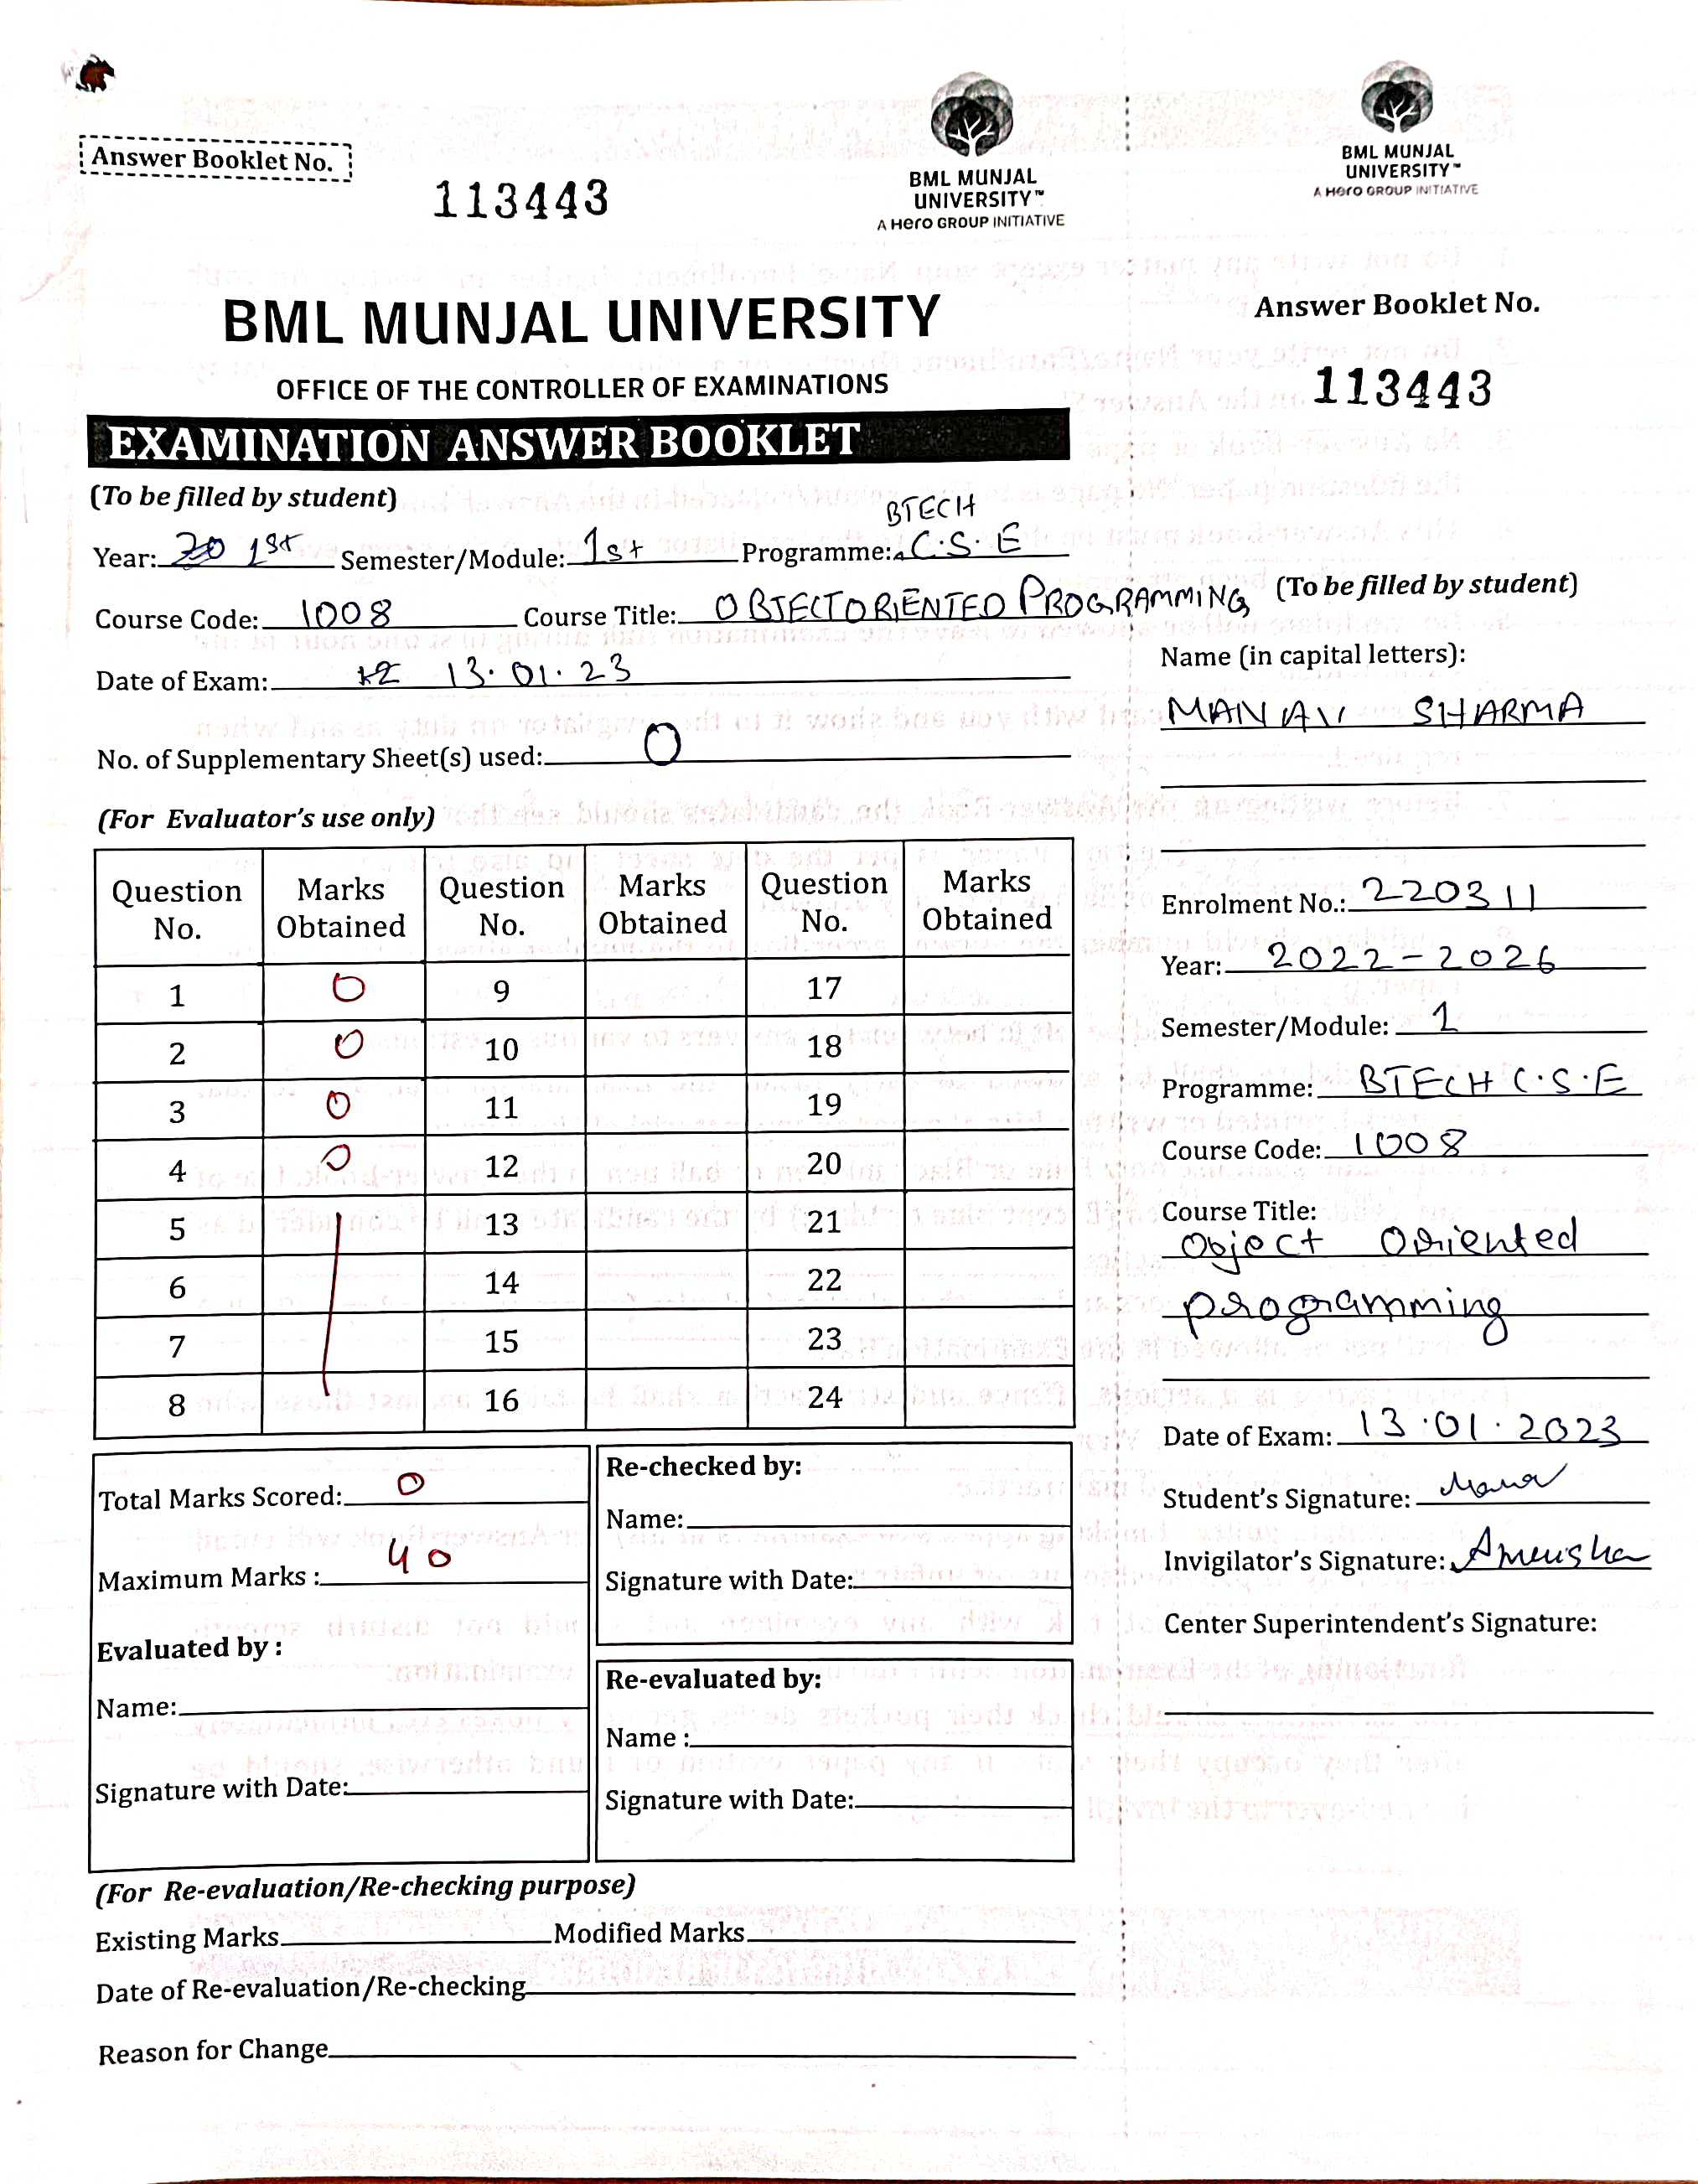 Answer Booklet No.
113443
BML MUNJAL
UNIVERSITY™
A Hero GROUP INITIATIVE
BML MUNJAL UNIVERSITY
OFFICE OF THE CONTROLLER OF EXAMINATIONS
EXAMINATION ANSWER BOOKLET
(To be filled by student)
BTECH
Year: 20 1st Semester/Module: 1st Programme: C.S.E
Course Code: 1008 Course Title: OBJECTORIENTED PROGRAMMING
Date of Exam: 12 13.01.23
No. of Supplementary Sheet(s) used: 0
(For Evaluator's use only)
Question No. Marks Obtained Question No. Marks Obtained Question No. Marks Obtained
1 0 9 17
2 0 10 18
3 0 11 19
4 0 12 20
5 13 21
6 14 22
7 15 23
8 16 24
Total Marks Scored: 0
Maximum Marks : 40
Evaluated by :
Name:
Signature with Date:
Re-checked by:
Name:
Signature with Date:
Re-evaluated by:
Name :
Signature with Date:
(For Re-evaluation/Re-checking purpose)
Existing Marks Modified Marks
Date of Re-evaluation/Re-checking
Reason for Change
BML MUNJAL
UNIVERSITY™
A Hero GROUP INITIATIVE
Answer Booklet No.
113443
(To be filled by student)
Name (in capital letters):
MANAV SHARMA
Enrolment No.: 220311
Year: 2022-2026
Semester/Module: 1
Programme: BTECH C.S.E
Course Code: 1008
Course Title:
Object Oriented
programming
Date of Exam: 13.01.2023
Student's Signature: Manav
Invigilator's Signature:
Center Superintendent's Signature: